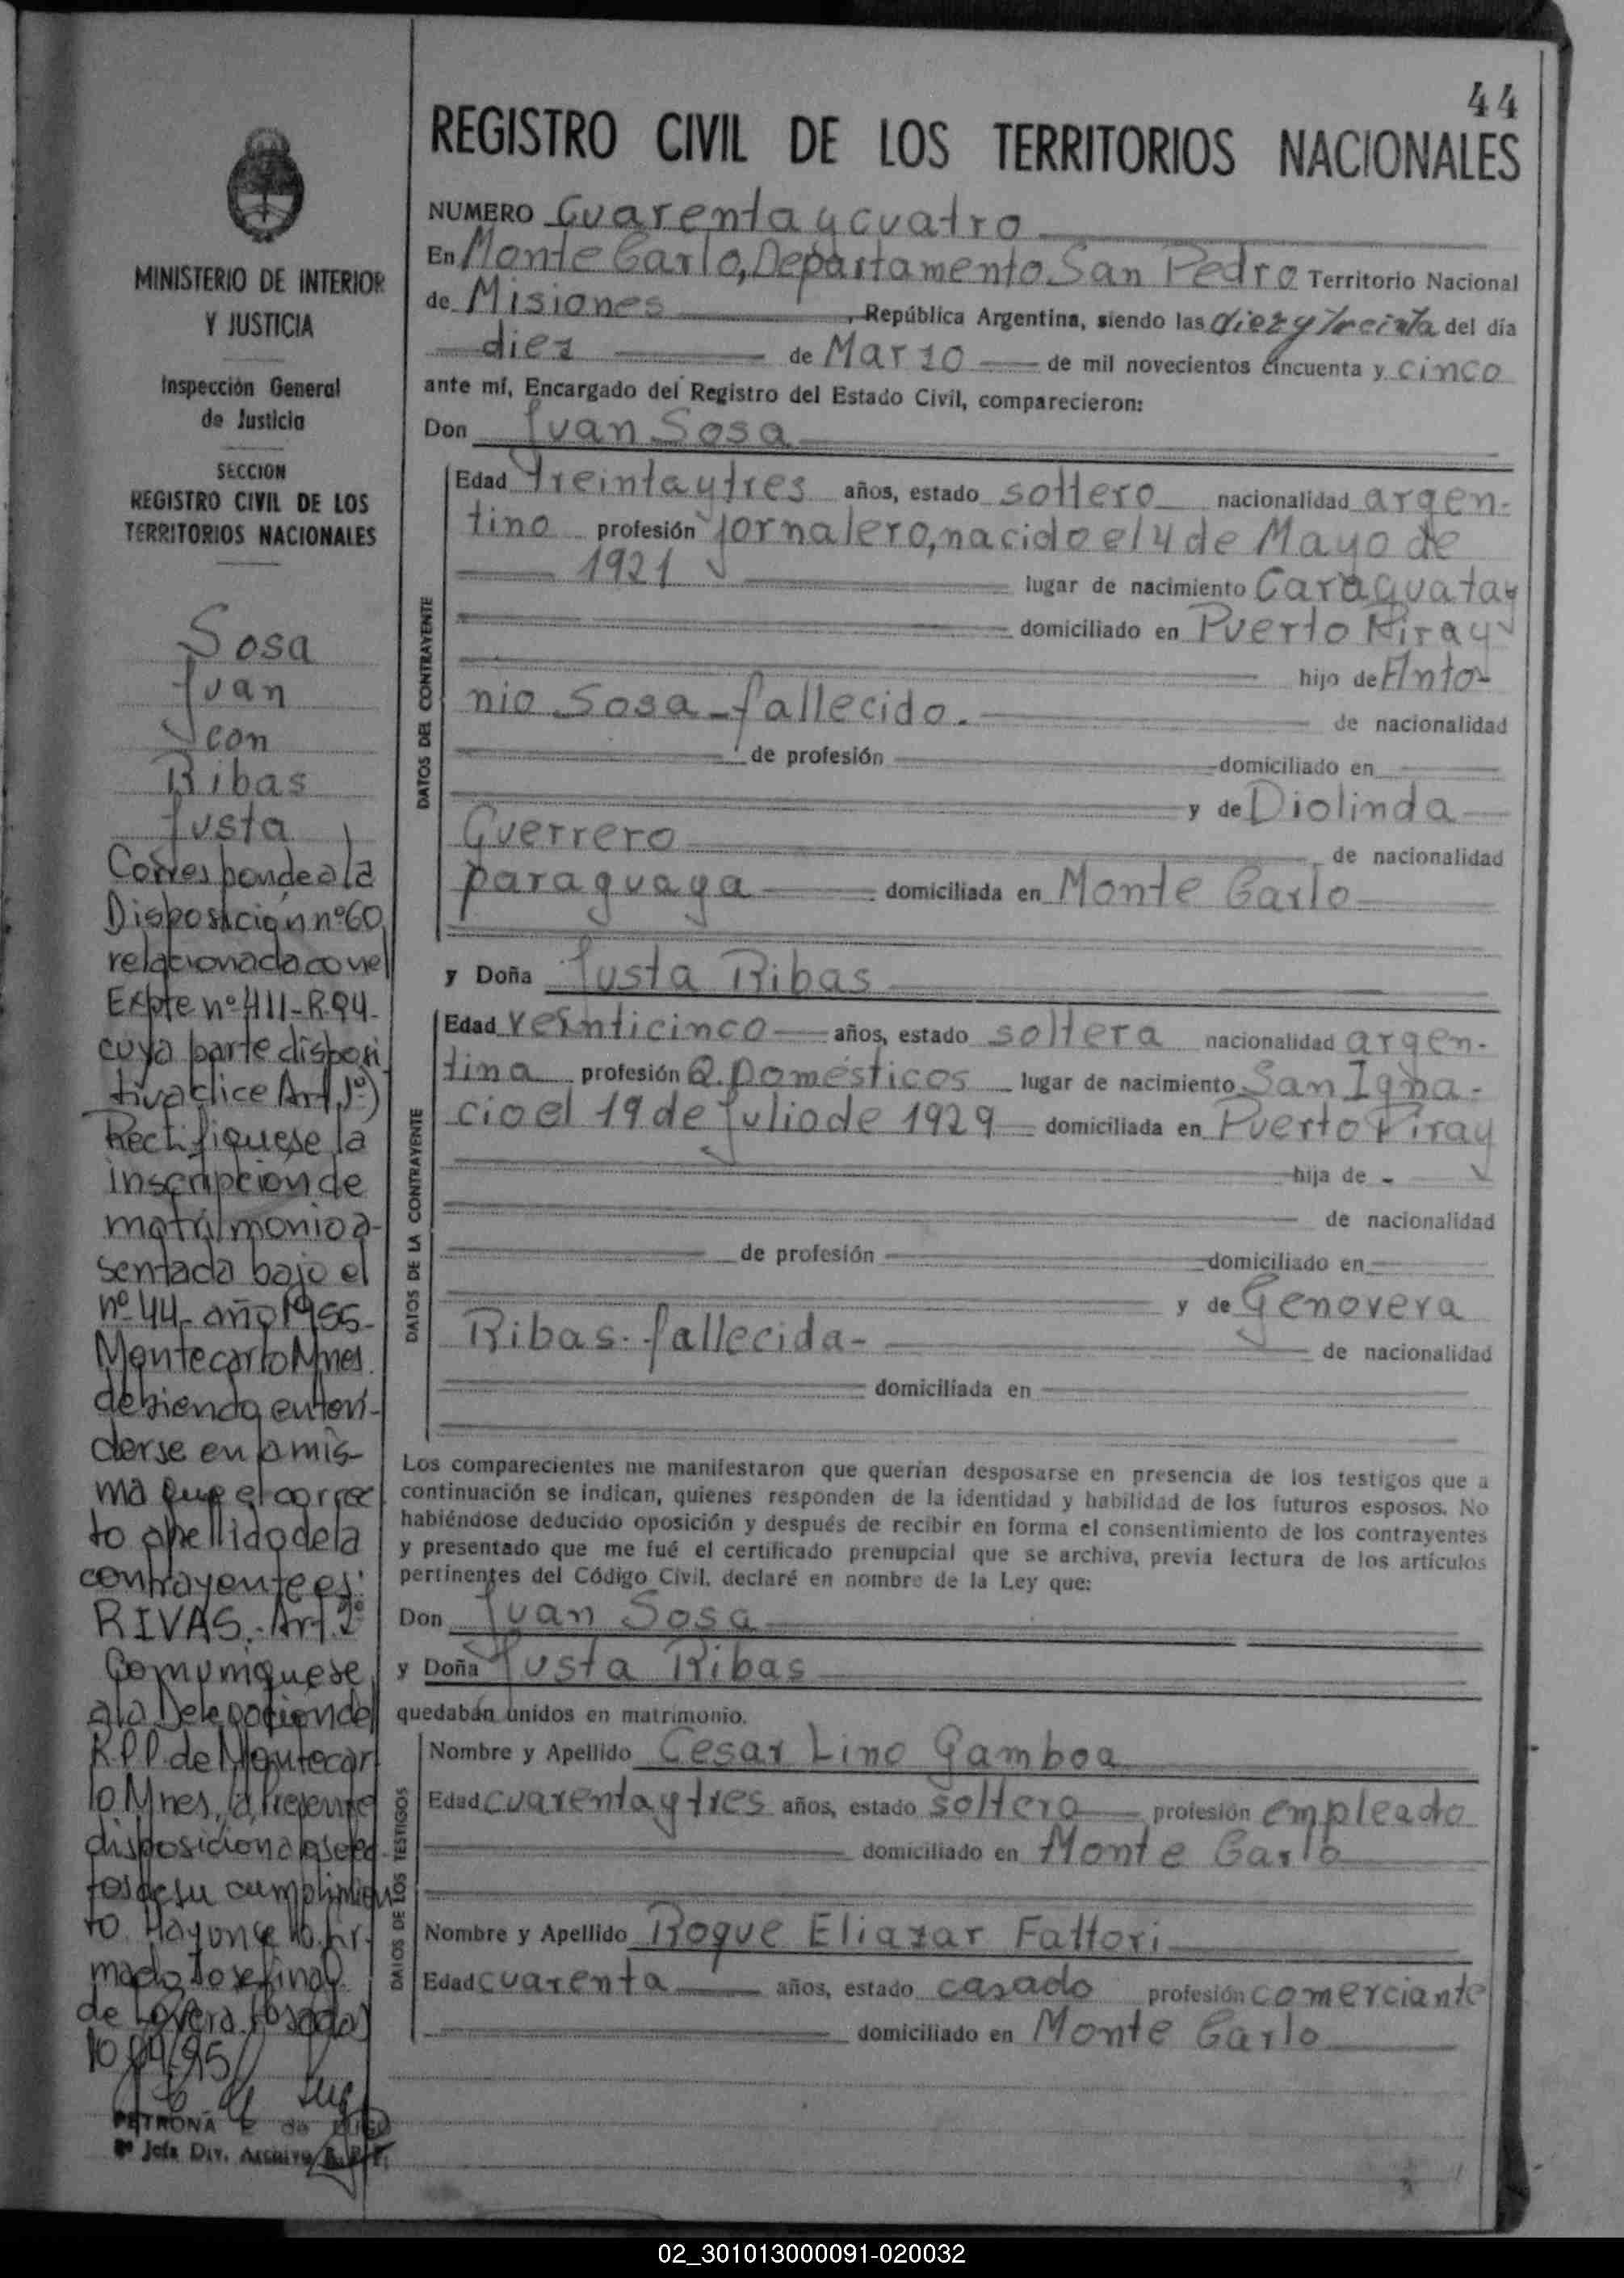 44
REGISTRO CIVIL DE LOS TERRITORIOS NACIONALES
MINISTERIO DE INTERIOR
Y JUSTICIA
Inspección General
de Justicia
SECCION
REGISTRO CIVIL DE LOS
TERRITORIOS NACIONALES
Sosa
Juan
con
Ribas
Justa
Corresponde a la
Disposición nº 60
relacionada con el
Expte nº 411-R-94-
cuya parte disposi
tiva dice Art. 1º)
Rectifiquese la
inscripción de
matrimonio a-
sentada bajo el
nº 44- año 1955-
Montecarlo Mnes.
debiendo enten-
derse en la mis-
ma que el correc
to apellido de la
contrayente es:
RIVAS.- Art. 2º
Comuniquese
a la Delegación del
R.P.P. de Montecar
lo Mnes, la presente
disposicion a los efec
tos de su cumplimien
to. Hay una
mado, Josefina
de Lovera Posadas
10/04/95
PETRONA E de LUGO
2ª Jefa Div. Archivo R.P.P.
NUMERO Cuarenta y cuatro
En Monte Carlo, Departamento San Pedro Territorio Nacional
de Misiones, República Argentina, siendo las diez y treinta del día
diez de Marzo de mil novecientos cincuenta y cinco
ante mí, Encargado del Registro del Estado Civil, comparecieron:
Don Juan Sosa
DATOS DEL CONTRAYENTE
Edad treinta y tres años, estado soltero nacionalidad argen-
tino profesión jornalero, nacido el 4 de Mayo de
1921 lugar de nacimiento Caraguatay
domiciliado en Puerto Piray
hijo de Anto-
nio Sosa - fallecido. de nacionalidad
de profesión domiciliado en
y de Diolinda
Guerrero de nacionalidad
paraguaya domiciliada en Monte Carlo
y Doña Justa Ribas
DATOS DE LA CONTRAYENTE
Edad veinticinco años, estado soltera nacionalidad argen-
tina profesión Q. Domésticos lugar de nacimiento San Igna-
cio el 19 de Julio de 1929 domiciliada en Puerto Piray
hija de -
de nacionalidad
de profesión domiciliado en
y de Genovera
Ribas - fallecida - de nacionalidad
domiciliada en
Los comparecientes me manifestaron que querían desposarse en presencia de los testigos que a
continuación se indican, quienes responden de la identidad y habilidad de los futuros esposos. No
habiéndose deducido oposición y después de recibir en forma el consentimiento de los contrayentes
y presentado que me fué el certificado prenupcial que se archiva, previa lectura de los artículos
pertinentes del Código Civil, declaré en nombre de la Ley que:
Don Juan Sosa
y Doña Justa Ribas
quedaban unidos en matrimonio.
DATOS DE LOS TESTIGOS
Nombre y Apellido Cesar Lino Gamboa
Edad cuarenta y tres años, estado soltero profesión empleado
domiciliado en Monte Carlo
Nombre y Apellido Roque Eliazar Fattori
Edad cuarenta años, estado casado profesión comerciante
domiciliado en Monte Carlo
02_301013000091-020032